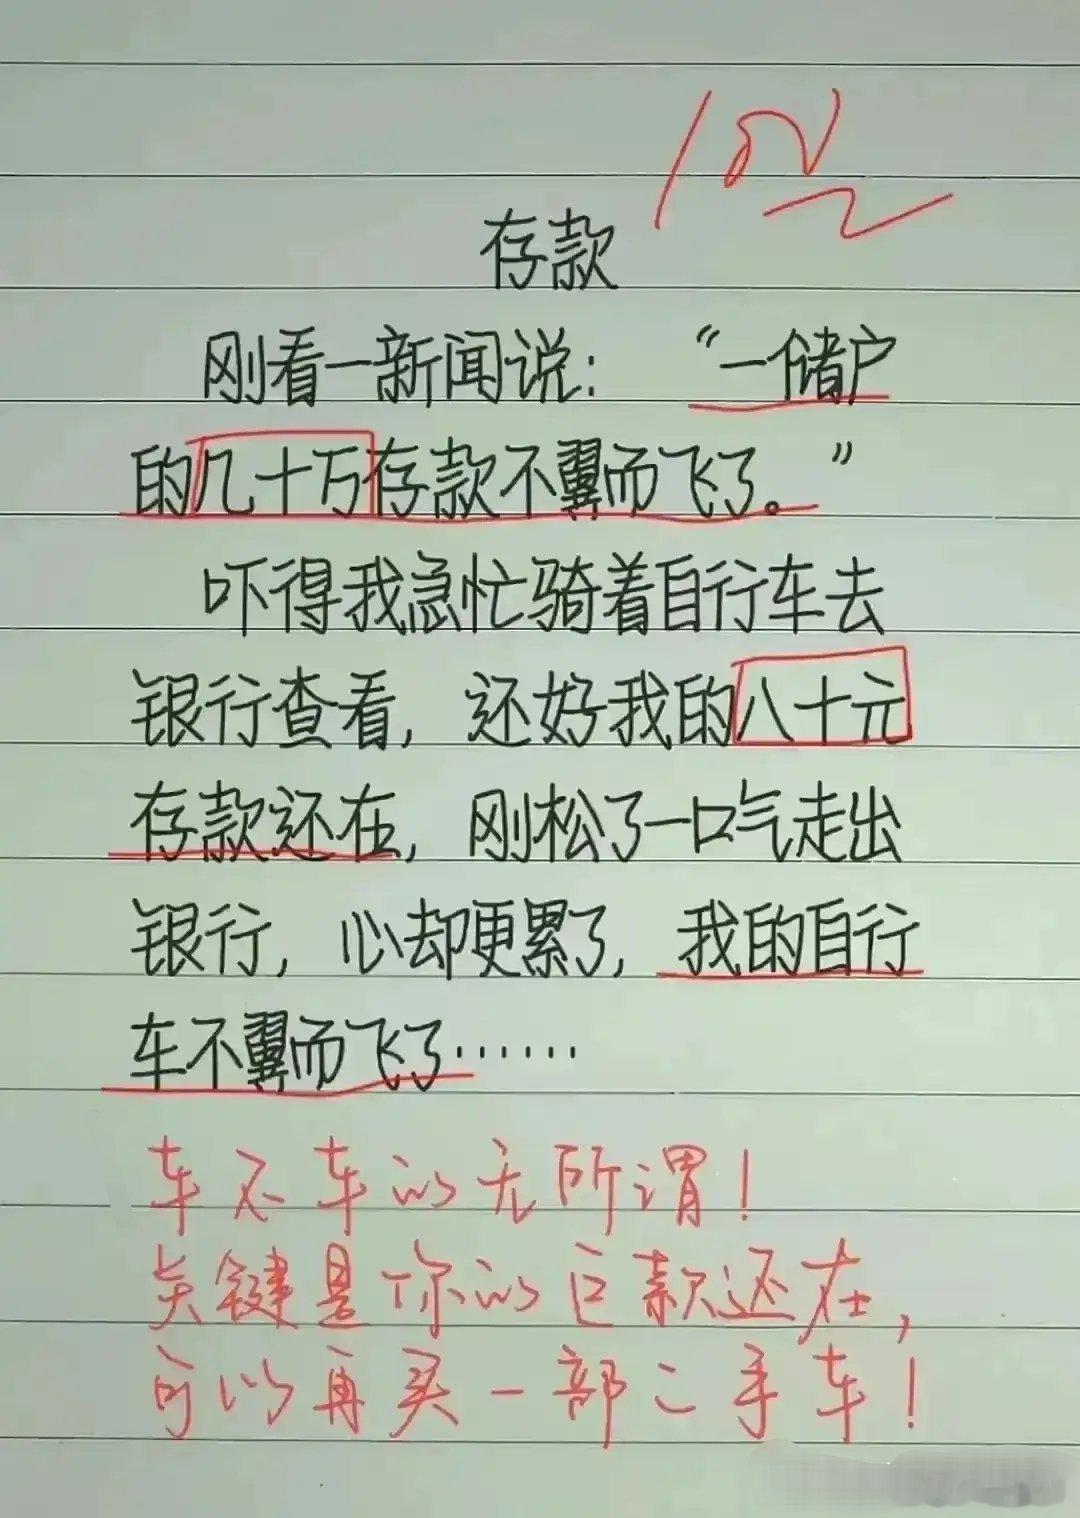 存款
刚看一新闻说：“一储户
的几十万存款不翼而飞了。”
吓得我急忙骑着自行车去
银行查看，还好我的八十元
存款还在，刚松了一口气走出
银行，心却更累了，我的自行
车不翼而飞了……
车不车的无所谓！
关键是你的巨款还在，
可以再买一部二手车！